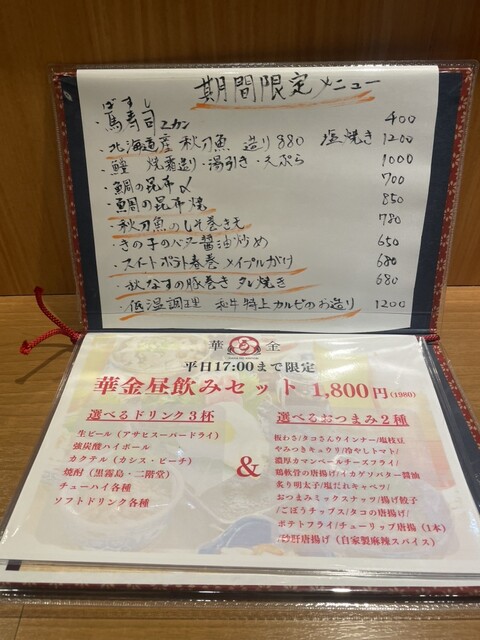 期間限定メニュー
ばすし
・馬寿司 2カン 400
・北海道産 秋刀魚 造り 880 塩焼き 1200
・鱧 焼霜造り・湯引き・天ぷら 1000
・鯛の昆布〆 700
・鯛の昆布焼 850
・秋刀魚のしそ巻き天 780
・きの子のバター醤油炒め 650
・スイートポテト春巻 メイプルがけ 680
・秋なすの豚巻き タレ焼き 680
・低温調理 和牛特上カルビのお造り 1200
華 金
平日17:00まで限定
華金昼飲みセット 1,800円(1980)
選べるドリンク3杯
生ビール（アサヒスーパードライ）
強炭酸ハイボール
カクテル（カシス・ピーチ）
焼酎（黒霧島・二階堂）
チューハイ各種
ソフトドリンク各種
&
選べるおつまみ2種
板わさ/タコさんウインナー/塩枝豆
やみつきキュウリ/冷やしトマト/
濃厚カマンベールチーズフライ/
鶏軟骨の唐揚げ/イカゲソバター醤油
炙り明太子/塩だれキャベツ/
おつまみミックスナッツ/揚げ餃子
/ごぼうチップス/タコの唐揚げ/
ポテトフライ/チューリップ唐揚（1本）
/砂肝唐揚げ（自家製麻辣スパイス）